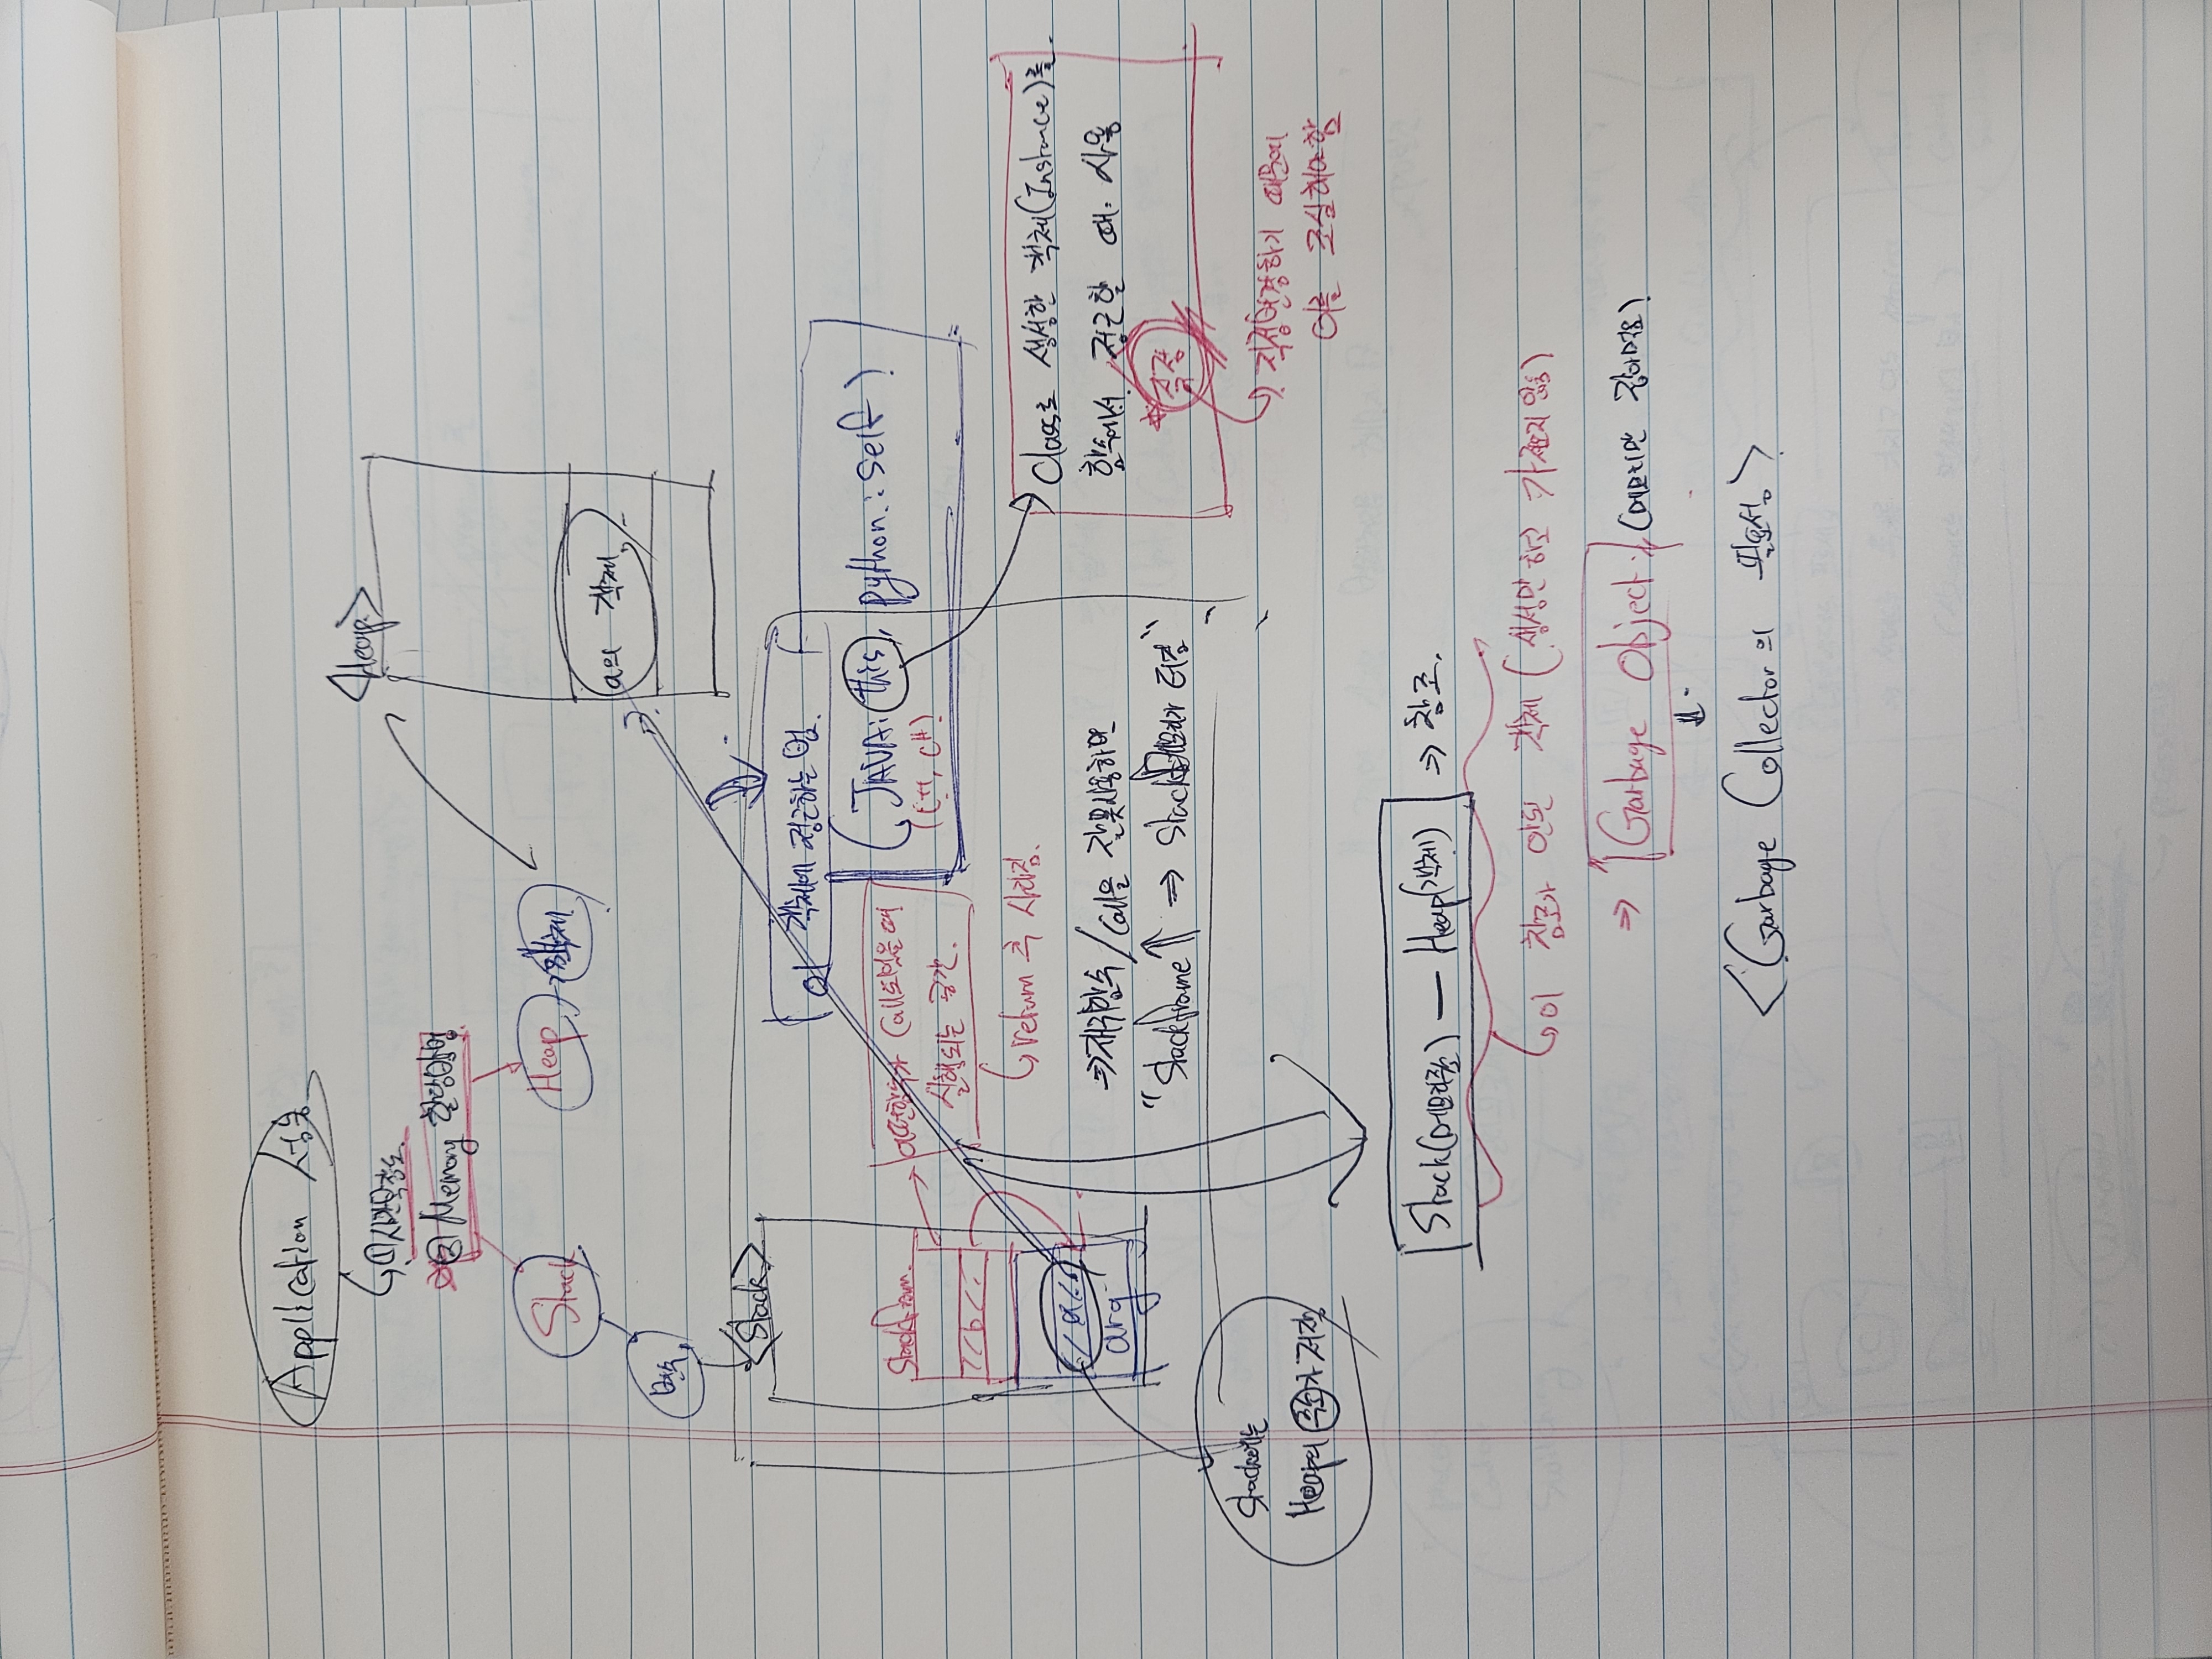 Application 성능
① 시간복잡도
② Memory 할당방법
Stack
Heap → 객체
변수
<Heap>
a의 객체
<Stack>
Stackfram.
b
a
arg
어떤함수가 Call되었을 때
실행되는 공간.
return 후 사라짐.
⇒ 재귀함수 / Call을 잘못사용하면
"Stackframe↑ ⇒ Stack메모리가 터짐"
이 객체에 접근하는 법.
JAVA: this, python: self )
(C++, C#)
Class로 생성한 객체(Instance)를
함수에서 접근할 때 사용
수정
직접변경하기 때문에
이를 조심해야함
Stack에는
Heap의 주소가 저장
Stack(메모리주소) — Heap(객체) ⇒ 참조.
이 참조가 안된 객체 (생성만 하고 가져오지 않음)
⇒ Garbage Object (메모리만 잡아먹음)
<Garbage Collector의 필요성>